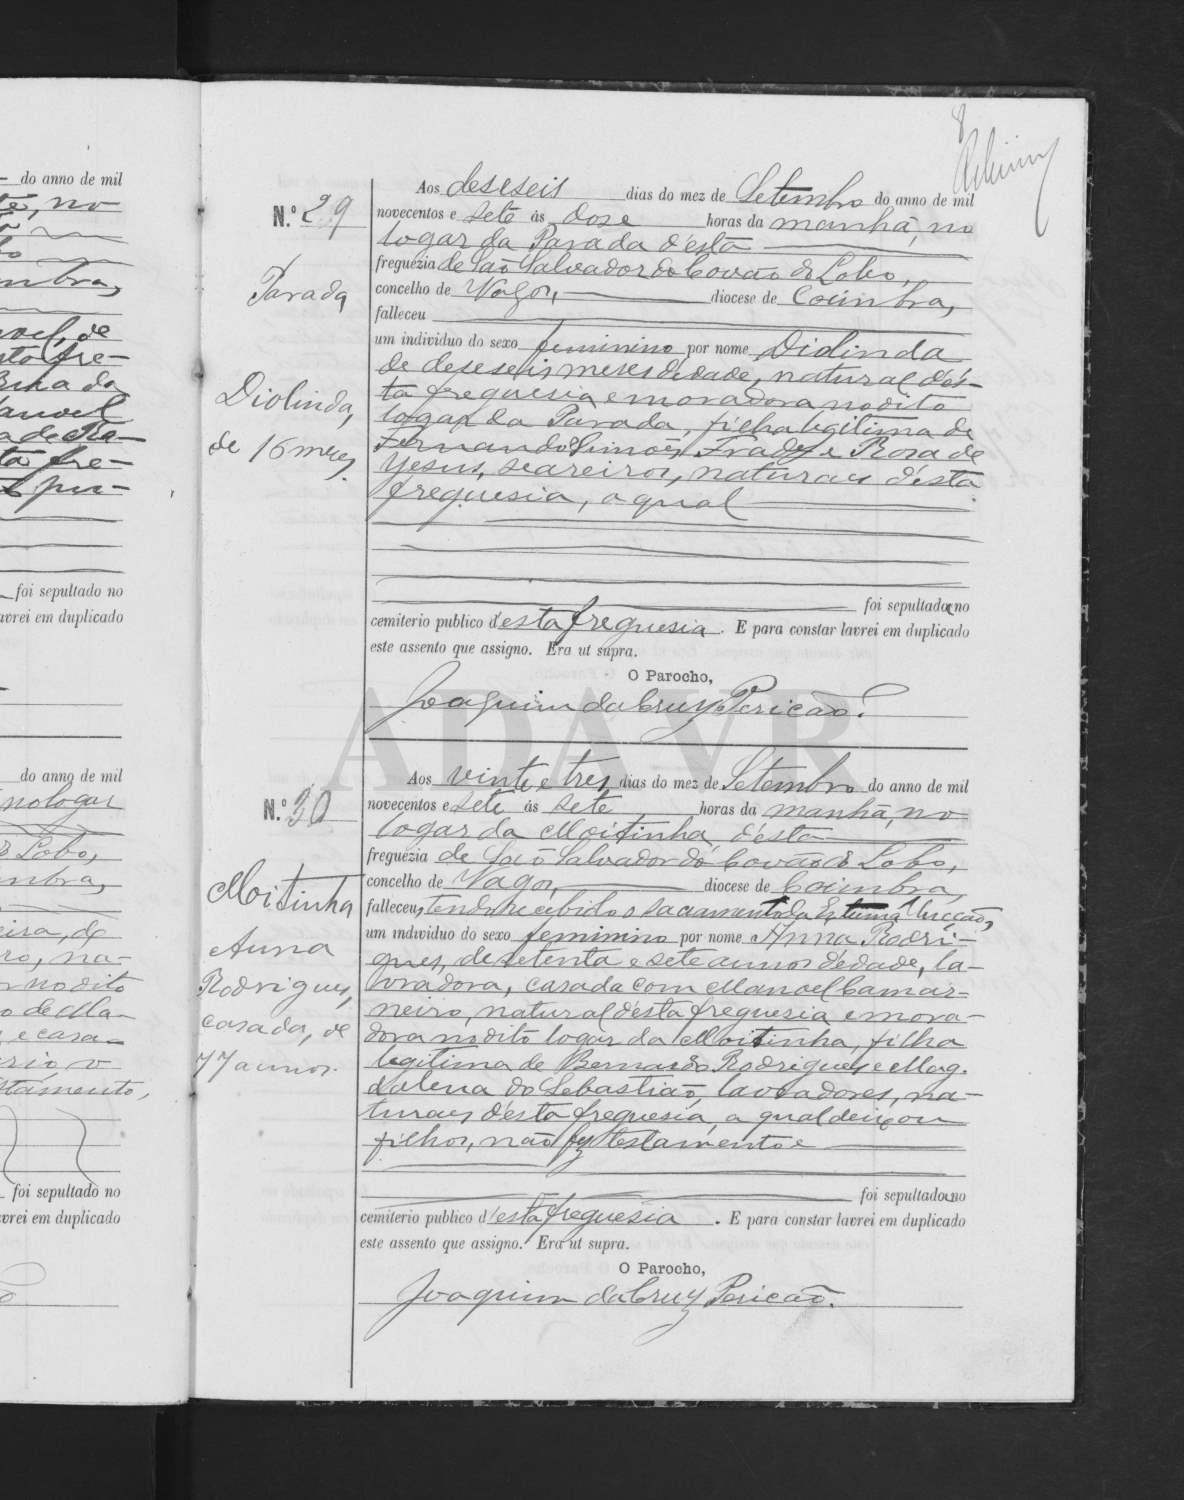 8
N.º 29
Parada
Diolinda,
de 16 meses.
Aos deseseis dias do mez de Setembro do anno de mil
novecentos e sete ás dose horas da manhã, no
logar da Parada d'esta
freguezia de São Salvador do Covão do Lobo,
concelho de Vagos, diocese de Coimbra,
falleceu
um individuo do sexo feminino por nome Diolinda
de deseseis meses d'edade, natural d'es-
ta freguesia e moradora no dito
logar da Parada, filha legitima de
Fernando Simões Frade e Rosa de
Jesus, seareiros, naturaes d'esta
freguesia, a qual
foi sepultada no
cemiterio publico d'esta freguesia. E para constar lavrei em duplicado
este assento que assigno. Era ut supra.
O Parocho,
Joaquim da Cruz Pericão.
N.º 30
Moitinha
Anna
Rodrigues,
casada, de
77 annos.
Aos vinte e tres dias do mez de Setembro do anno de mil
novecentos e sete ás sete horas da manhã, no
logar da Moitinha d'esta
freguezia de São Salvador do Covão do Lobo,
concelho de Vagos, diocese de Coimbra,
falleceu, tendo recebido o sacramento da Extrema Uncção,
um individuo do sexo feminino por nome Anna Rodri-
gues, de setenta e sete annos d'edade, la-
vradora, casada com Manoel Camar-
neiro, natural d'esta freguesia e mora-
dora no dito logar da Moitinha, filha
legitima de Bernardo Rodrigues e Mag-
dalena do Sebastião, lavradores, na-
turaes d'esta freguesia, a qual deixou
filhos, não fez testamento e
foi sepultada no
cemiterio publico d'esta freguesia. E para constar lavrei em duplicado
este assento que assigno. Era ut supra.
O Parocho,
Joaquim da Cruz Pericão.
do anno de mil
foi sepultado no
avrei em duplicado
do anno de mil
no logar
Lobo,
no dito
e casa-
stamento,
foi sepultado no
avrei em duplicado
ADAVR